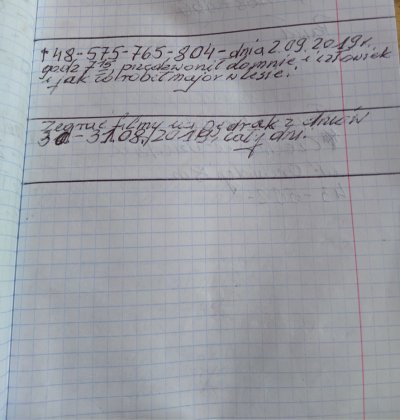 +48-575-765-304-dnia 2.09.2019 r.
godz 7 15, przedzwonił do mnie i człowiek
i jak to robił major w lesie.
zegrać filmy z dniów
30-31.08.2019, cały dni.